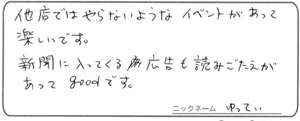 他店ではやらないような イベントがあって
楽しいです。
新聞に入ってくる 広告も読みごたえが
あって goodです。
ニックネーム ゆってぃ